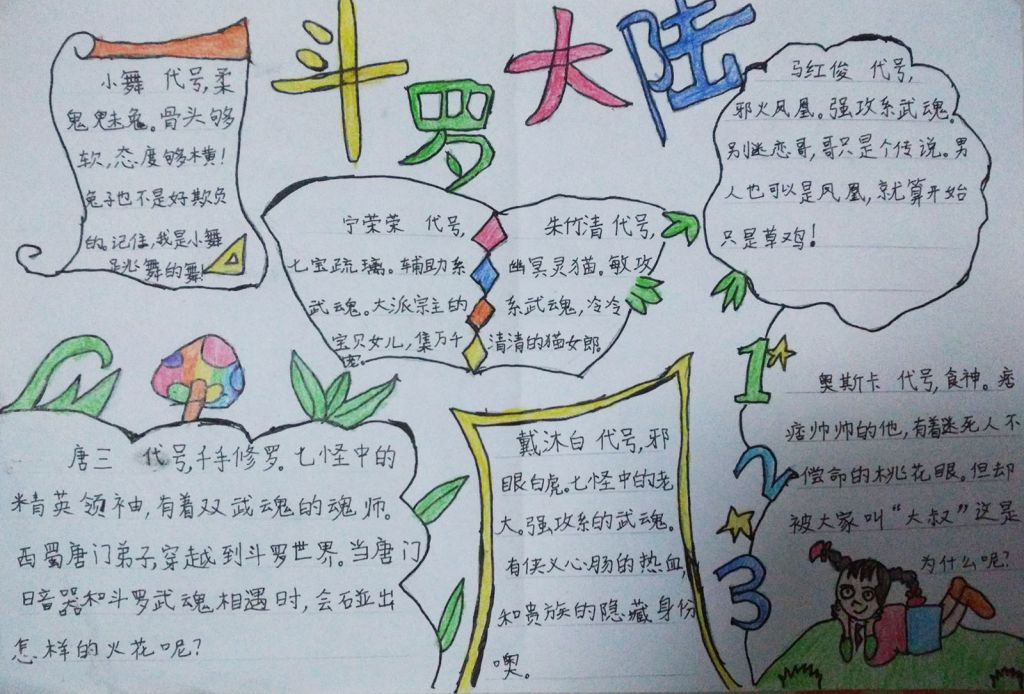 斗罗大陆
小舞 代号,柔
鬼魅兔。骨头够
软,态度够横!
兔子也不是好欺负
的。记住,我是小舞
跳舞的舞!
宁荣荣 代号,
七宝疏璃。辅助系
武魂。大派宗主的
宝贝女儿,集万千
宠。
朱竹清 代号,
幽冥灵猫。敏攻
系武魂,冷冷
清清的猫女郎。
马红俊 代号,
邪火凤凰。强攻系武魂。
别迷恋哥,哥只是个传说。男
人也可以是凤凰,就算开始
只是草鸡!
唐三 代号,千手修罗。七怪中的
精英领袖,有着双武魂的魂师。
西蜀唐门弟子,穿越到斗罗世界。当唐门
暗器和斗罗武魂相遇时,会碰出
怎样的火花呢?
戴沐白 代号,邪
眼白虎。七怪中的老
大。强攻系的武魂。
有侠义心肠的热血,
和贵族的隐藏身份
噢。
1
2
3
奥斯卡 代号,食神。痞
痞帅帅的他,有着迷死人不
偿命的桃花眼。但却
被大家叫“大叔”这是
为什么呢?